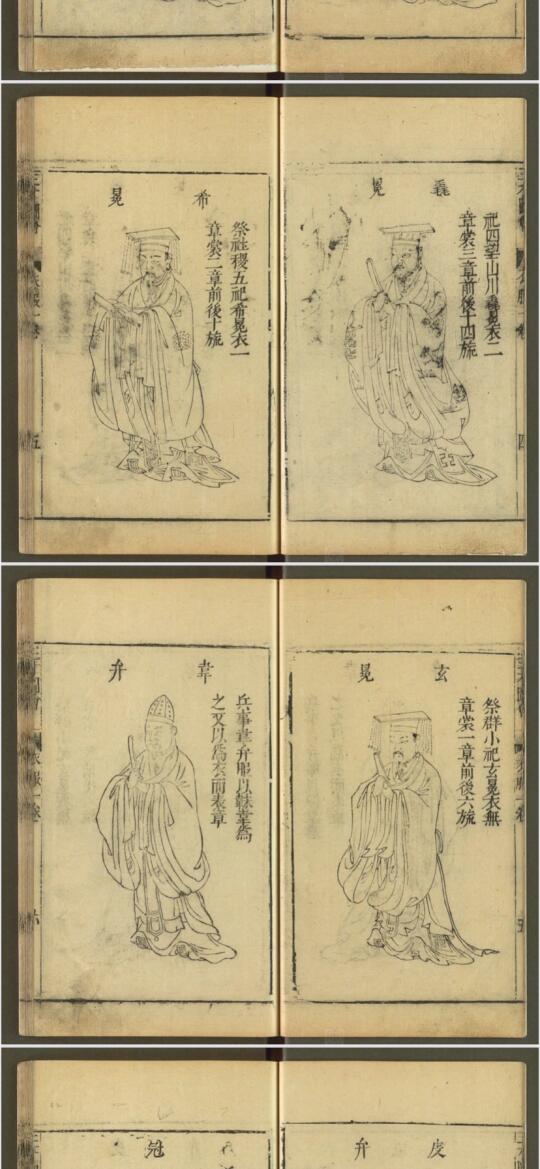 毳冕
祀四望山川毳冕衣三
章裳二章前後十四旒
希冕
祭社稷五祀希冕衣一
章裳二章前後十旒
衣服一卷
五
玄冕
祭群小祀玄冕衣無
章裳一章前後六旒
韋弁
兵事韋弁服以韎韋為
弁又以為衣而素裳
衣服一卷
六
皮弁
冠